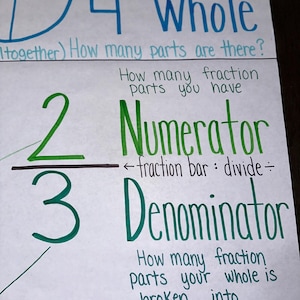 4 Whole
together) How many parts are there?
How many fraction
parts you have
2 Numerator
← fraction bar : divide ÷
3 Denominator
How many fraction
parts your whole is
broken into